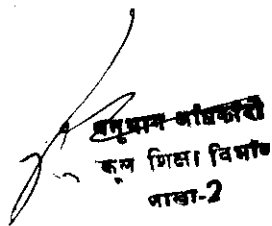 अनुभाग अधिकारी
कूल शिक्षा विभाग
शाखा-2